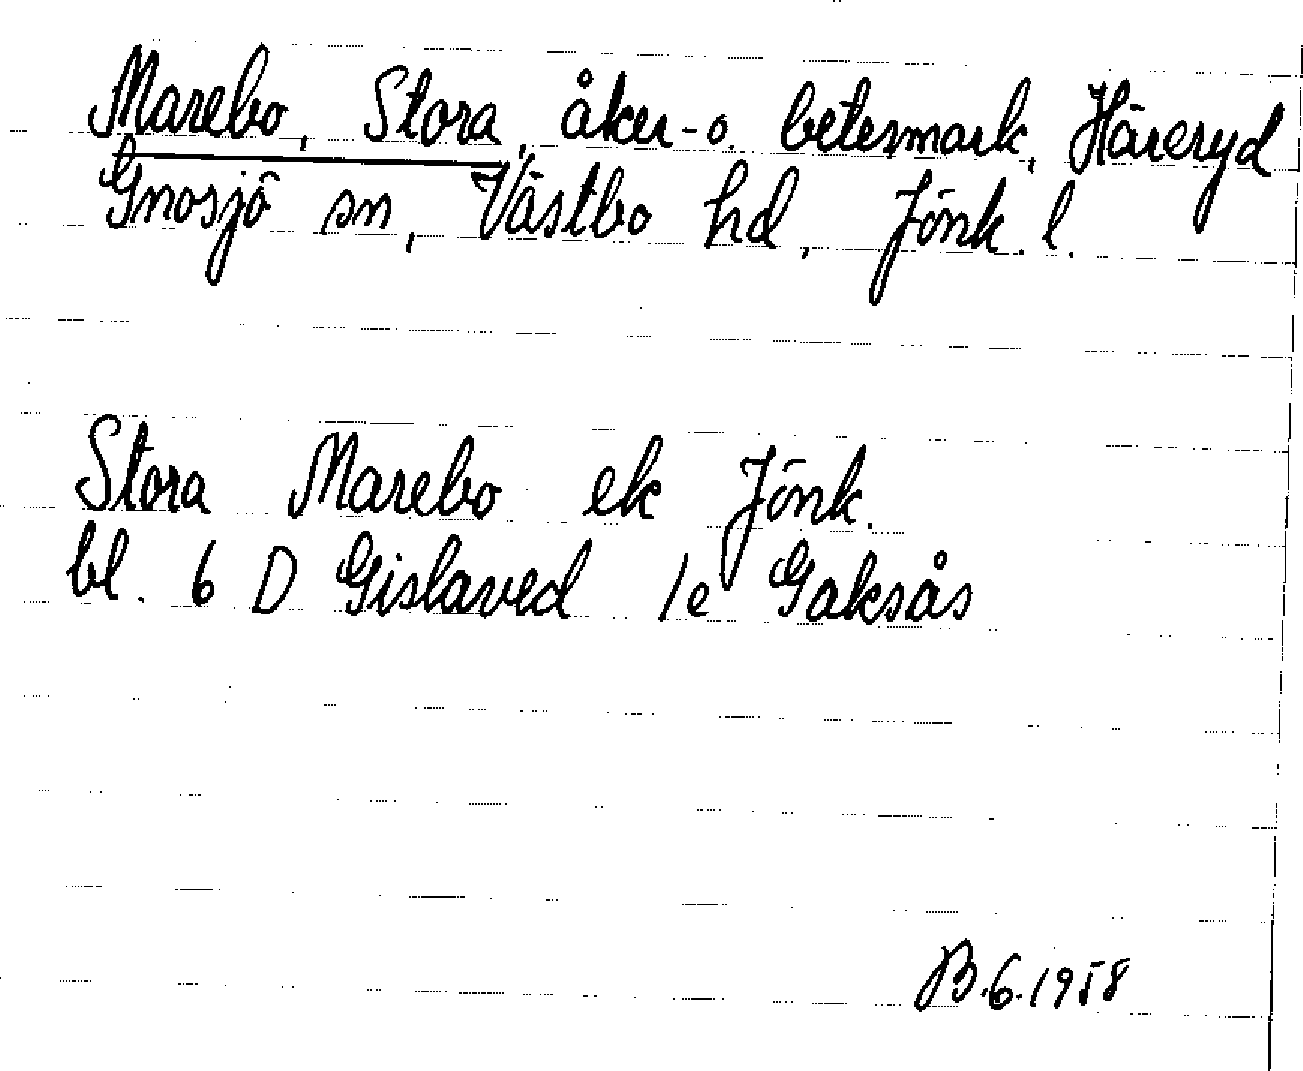 Marebo, Stora, åker- o. betesmark, Häreryd
Gnosjö sn, Västbo hd, Jönk. l.
Stora Marebo ek Jönk.
bl. 6 D Gislaved 1e Gaksås
B.6.1958